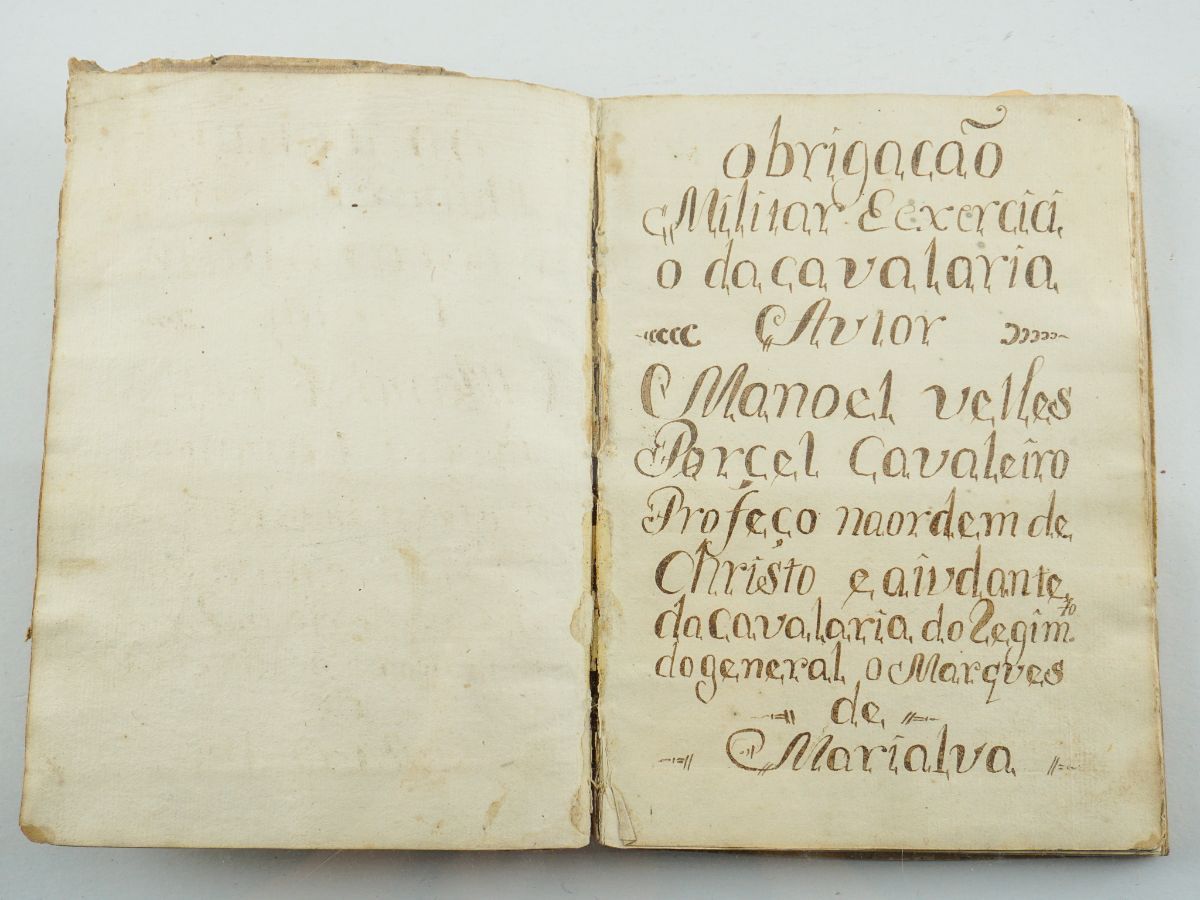 obrigação
Militar E exercici
o da cavalaria
Autor
Manoel velles
Porcel Cavaleiro
Profeço na ordem de
Christo e aiudante
da cavalaria do Regim.to
do general o Marques
de
Marialva